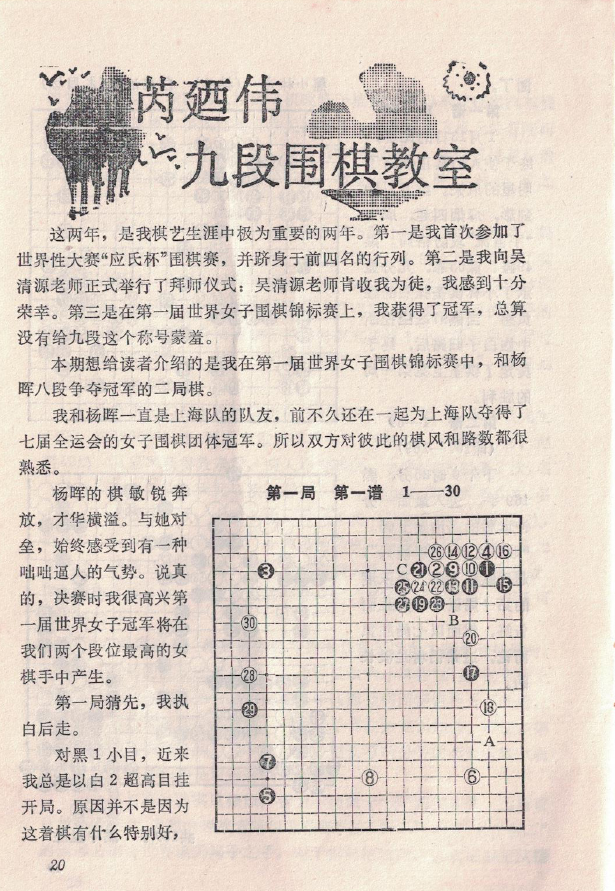 芮廼伟
九段围棋教室
这两年，是我棋艺生涯中极为重要的两年。第一是我首次参加了
世界性大赛“应氏杯”围棋赛，并跻身于前四名的行列。第二是我向吴
清源老师正式举行了拜师仪式；吴清源老师肯收我为徒，我感到十分
荣幸。第三是在第一届世界女子围棋锦标赛上，我获得了冠军，总算
没有给九段这个称号蒙羞。
本期想给读者介绍的是我在第一届世界女子围棋锦标赛中，和杨
晖八段争夺冠军的二局棋。
我和杨晖一直是上海队的队友，前不久还在一起为上海队夺得了
七届全运会的女子围棋团体冠军。所以双方对彼此的棋风和路数都很
熟悉。
杨晖的棋敏锐奔
放，才华横溢。与她对
垒，始终感受到有一种
咄咄逼人的气势。说真
的，决赛时我很高兴第
一届世界女子冠军将在
我们两个段位最高的女
棋手中产生。
第一局猜先，我执
白后走。
对黑1小目，近来
我总是以白2超高目挂
开局。原因并不是因为
这着棋有什么特别好，
第一局 第一谱 1——30
㉖ ⑭ ⑫ ④ ⑯
3 C 21 ② 9 ⑩ 1
25 ㉔ ㉒ 13 11 15
27 19 23
㉚ B
⑳
㉘ 17
29 ⑱
A
7
⑧ ⑥
5
20